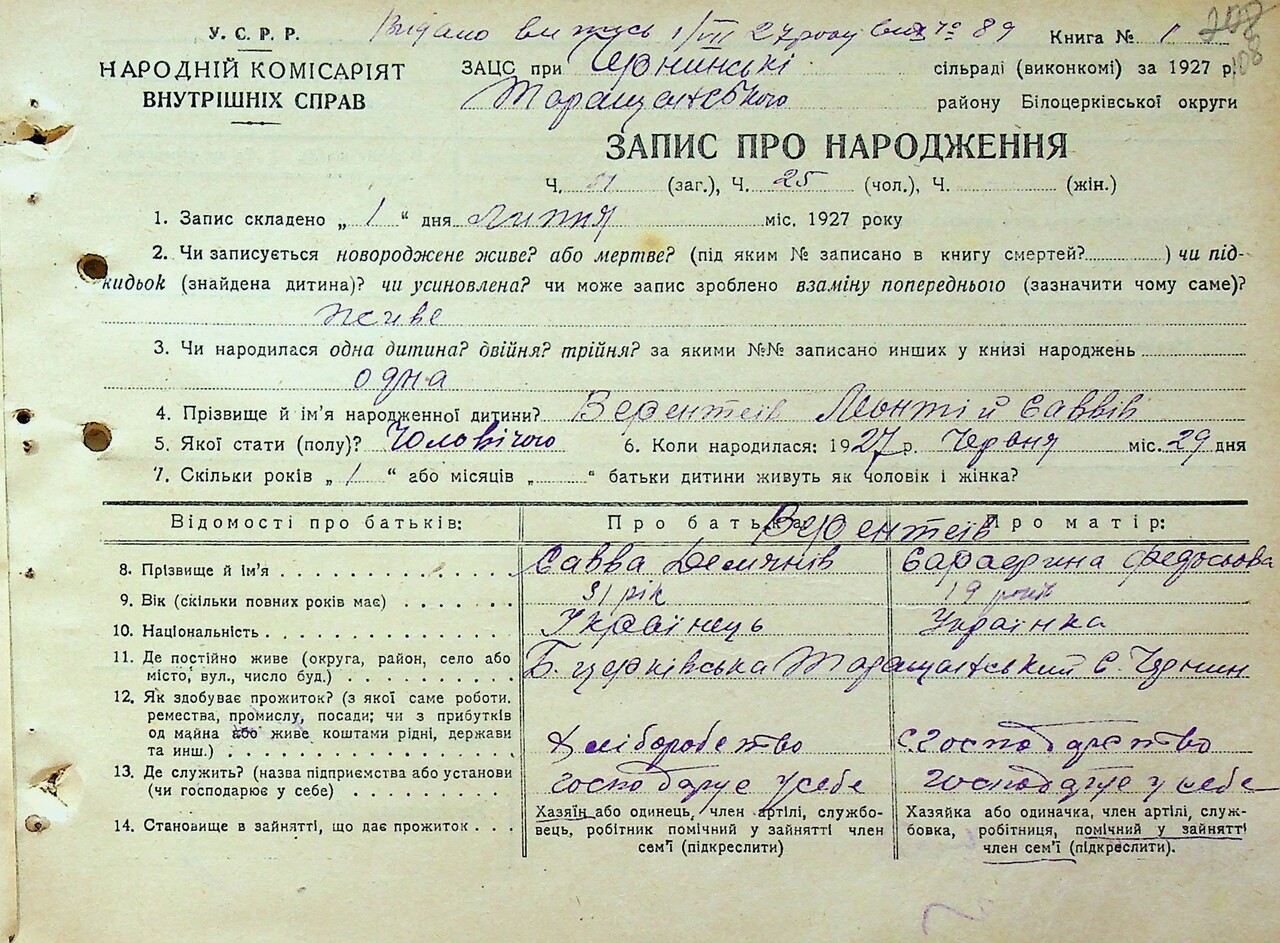 Видано випись 1/VII 27 року вих № 89
У. С. Р. Р.
НАРОДНІЙ КОМІСАРІЯТ
ВНУТРІШНІХ СПРАВ
Книга № 1
208
108
ЗАЦС при Чернинські сільраді (виконкомі) за 1927 р.
Таращанського району Білоцерківської округи
ЗАПИС ПРО НАРОДЖЕННЯ
Ч. 51 (заг.), Ч. 25 (чол.), Ч. (жін.)
1. Запис складено „ 1 “ дня липня міс. 1927 року
2. Чи записується новороджене живе? або мертве? (під яким № записано в книгу смертей? ) чи під-
кидьок (знайдена дитина)? чи усиновлена? чи може запис зроблено взаміну попереднього (зазначити чому саме)?
живе
3. Чи народилася одна дитина? двійня? трійня? за якими №№ записано инших у книзі народжень
одна
4. Прізвище й ім’я народженної дитини? Верентеів Леонтій Саввів
5. Якої статі (полу)? Чоловічого 6. Коли народилася: 1927 р. Червня міс. 29 дня
7. Скільки років „ 1 “ або місяців „ “ батьки дитини живуть як чоловік і жінка?
Відомості про батьків: Про батька: Про матір:
Верентеів
8. Прізвище й ім’я Савва Демянів Сарафина Федосьова
9. Вік (скільки повних років має) 31 рік 19 років
10. Національність Українець Українка
11. Де постійно живе (округа, район, село або
місто, вул., число буд.) Б. церківська Таращанський С. Чернин
12. Як здобуває прожиток? (з якої саме роботи.
ремества, промислу, посади; чи з прибутків
од майна або живе коштами рідні, держави
та инш.) Хліборобство С. Господарство
13. Де служить? (назва підприємства або установи
(чи господарює у себе) господарує у себе господарує у себе
14. Становище в зайнятті, що дає прожиток
Хазяїн або одинець, член артілі, службо-
вець, робітник помічний у зайнятті член
сем’ї (підкреслити)
Хазяйка або одиначка, член артілі, служ-
бовка, робітниця, помічний у зайнятті
член сем’ї (підкреслити).